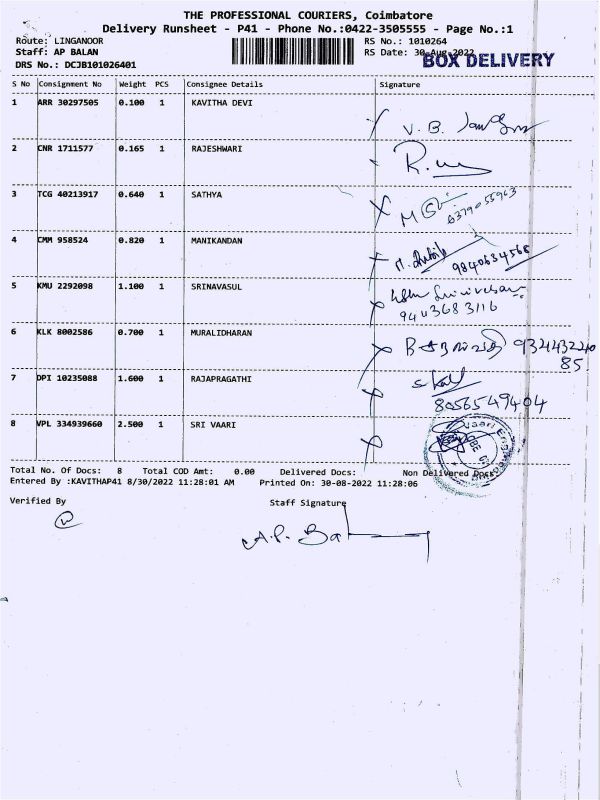 THE PROFESSIONAL COURIERS, Coimbatore
Delivery Runsheet - P41 - Phone No.:0422-3505555 - Page No.:1
Route: LINGANOOR RS No.: 1010264
Staff: AP BALAN RS Date: 30-Aug-2022
BOX DELIVERY
DRS No.: DCJB101026401
S No Consignment No Weight PCS Consignee Details Signature
1 ARR 30297505 0.100 1 KAVITHA DEVI
V. B.
2 CNR 1711577 0.165 1 RAJESHWARI
3 TCG 40213917 0.640 1 SATHYA
6379055963
4 CMM 958524 0.820 1 MANIKANDAN
9840634568
5 KMU 2292098 1.100 1 SRINAVASUL
9443683116
6 KLK 8002586 0.700 1 MURALIDHARAN
9324432240
85
7 DPI 10235088 1.600 1 RAJAPRAGATHI
8056549404
8 VPL 334939660 2.500 1 SRI VAARI
Total No. Of Docs: 8 Total COD Amt: 0.00 Delivered Docs: Non Delivered Docs:
Entered By :KAVITHAP41 8/30/2022 11:28:01 AM Printed On: 30-08-2022 11:28:06
Verified By Staff Signature
A.P. Bal